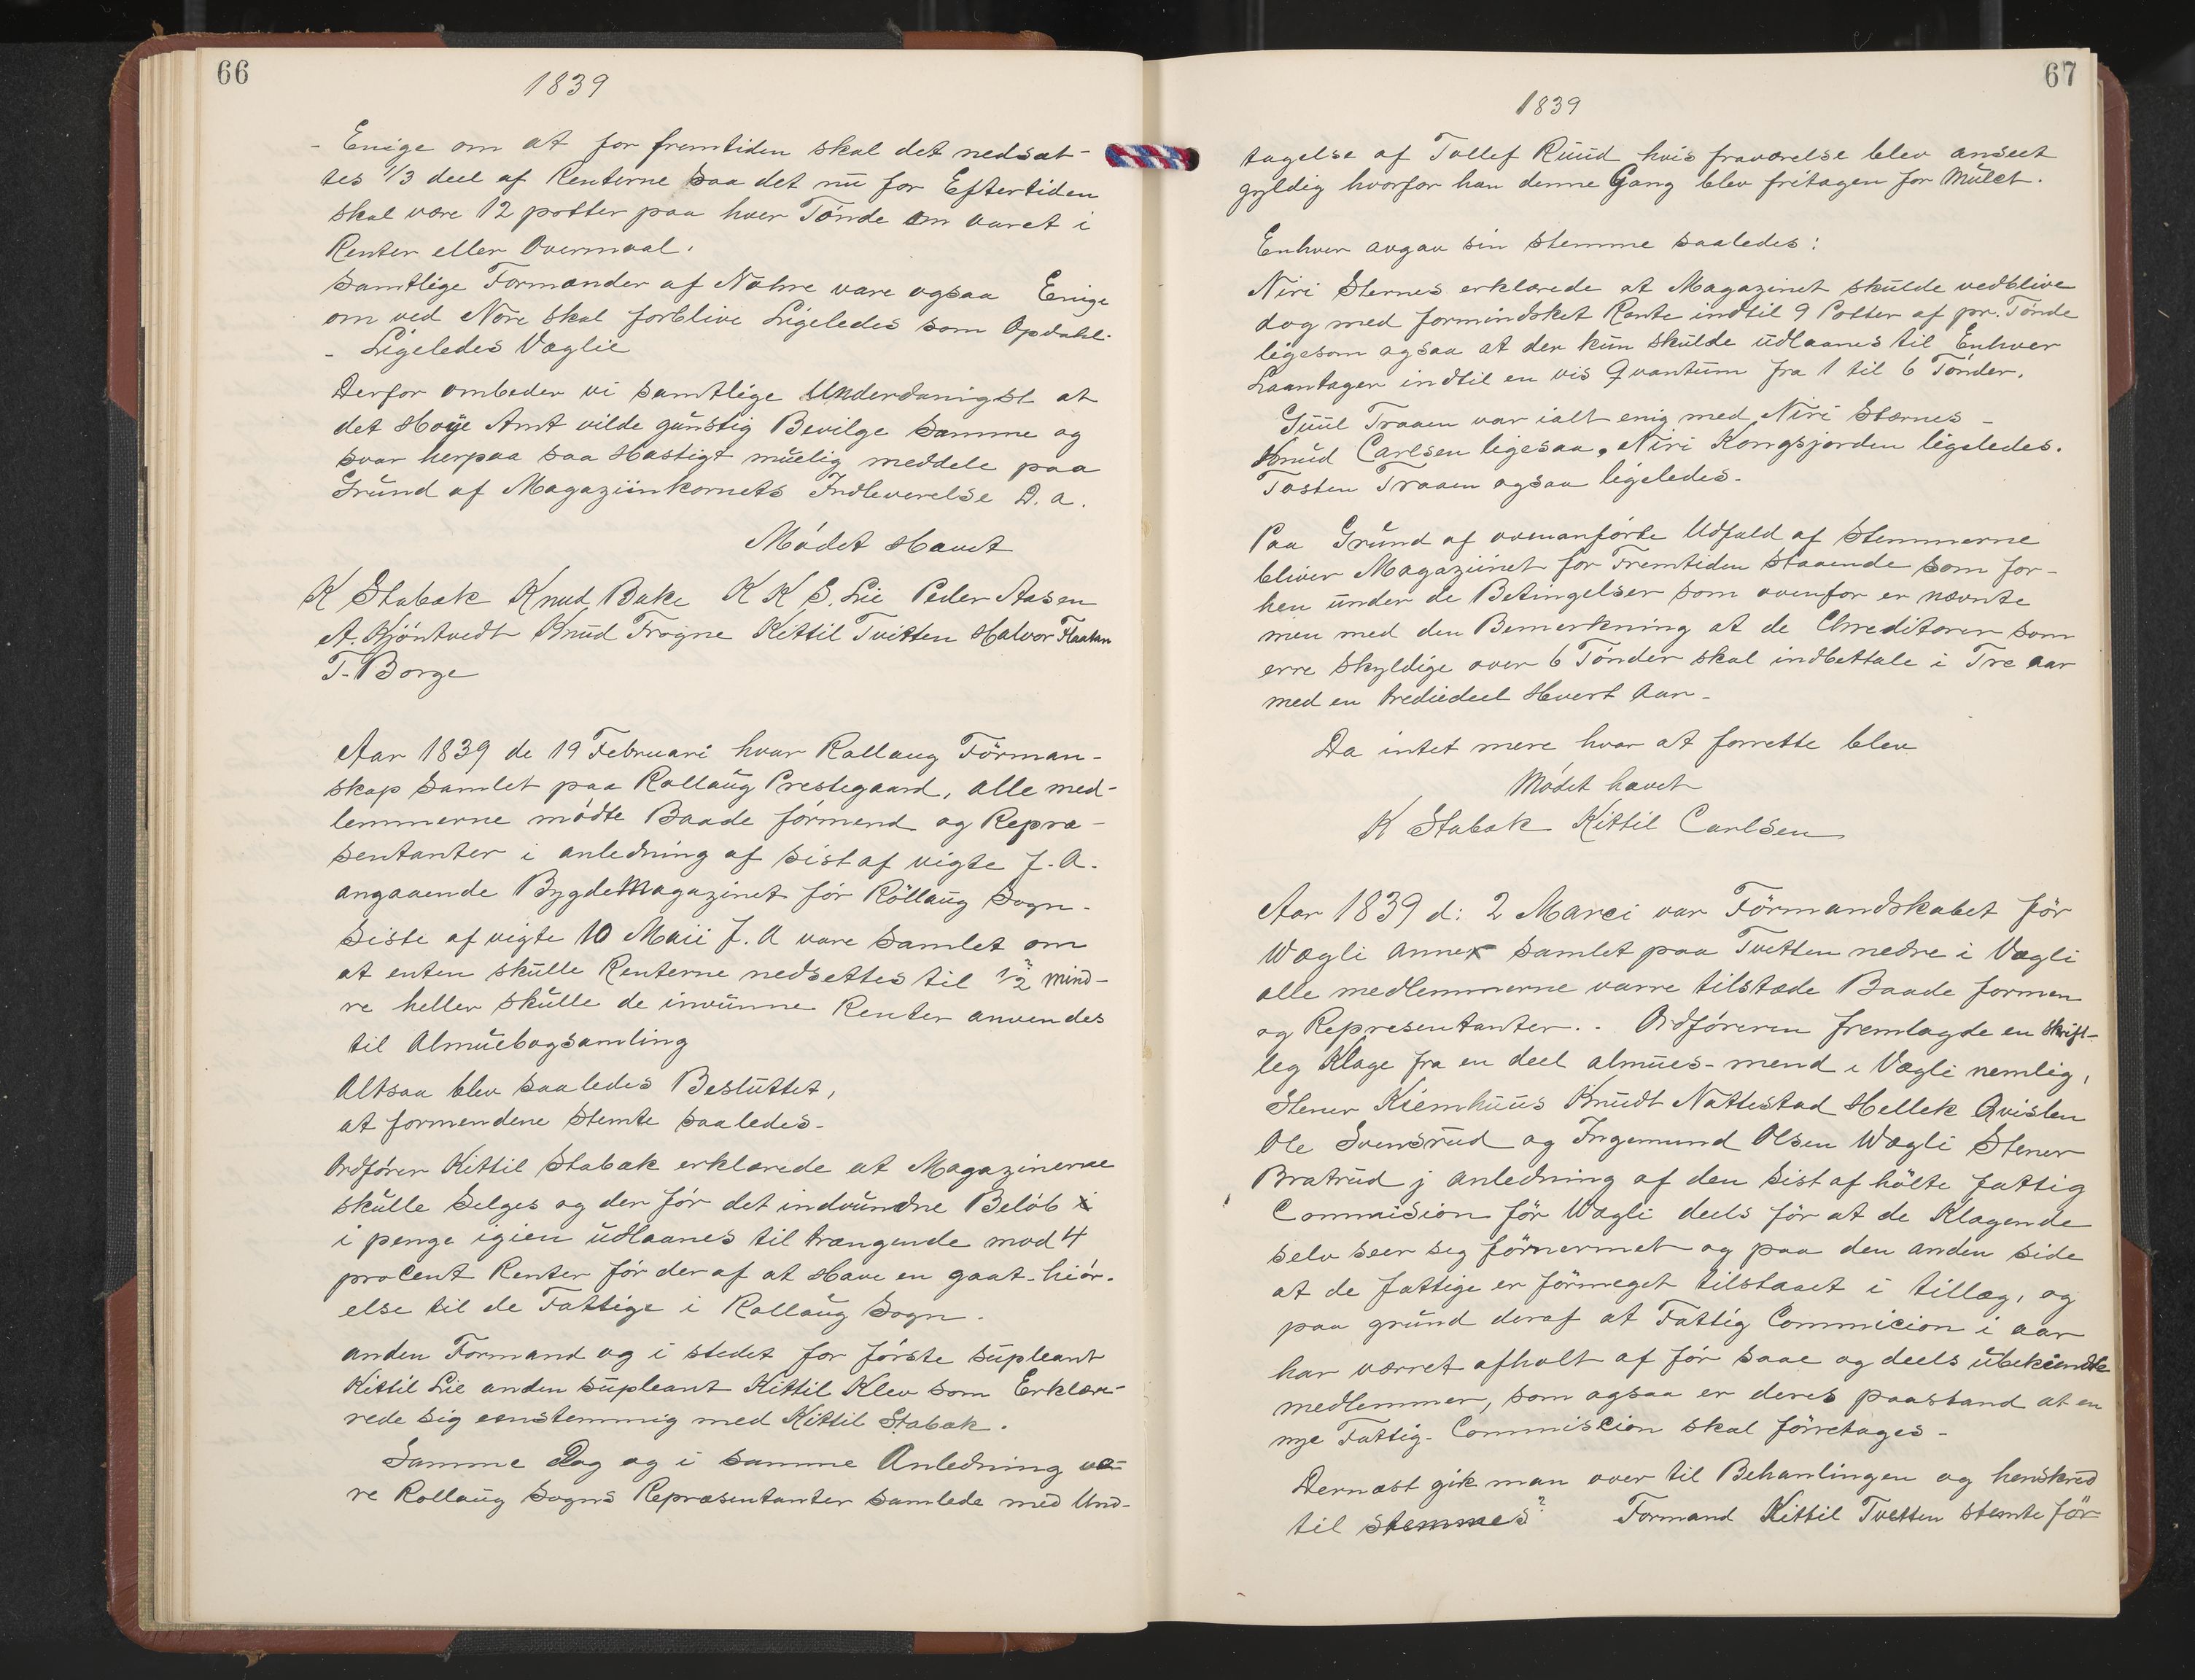 66
1839
- Enige om at for fremtiden skal det nedsat-
tes 1/3 deel af Renterne saa det nu for Eftertiden
skal være 12 potter paa hver Tønde om aaret i
Renter eller Overmaal.
samtlige Formænder af Nohre vare ogsaa Enige
om ved Nore skal forblive Ligeledes som Opdahl.
- Ligeledes Væglie
Derfor ombeder vi samtlige Underdanigst at
det Høye Amt vilde gunstig Bevilge Samme og
svar herpaa saa Hastigt muelig meddele paa
Grund af Magaziinkornets Indleverelse D. a.
Mødet Hævet
K Stabæk Knud Bake K K S. Lie Peder Aasen
A. Kjöntvedt Knud Frogne Kittil Tvitten Halvor Haatan
T. Borge
Aar 1839 de 19 Februari hvar Rollaug Förman-
skap samlet paa Rollaug Prestegaard, alle med-
lemmerne mødte Baade førmend og Repræ-
sentanter i anledning af sist af vigte f. A.
angaaende BygdeMagazinet før Röllaug Sogn.
Siste af vigte 10 Maii f. A vare samlet om
at enten skulle Renterne nedsettes til 1/2 ? mind-
re heller skulle de invunne Renter anvendes
til Almuebogsamling
Altsaa blev saaledes Besluttet,
at formendene stemte saaledes.
Ordfører Kittil Stabæk erklærede at Magazinerne
skulle Selges og der før det indvundne Beløb i
i penge igien udlaanes til trængende mod 4
proCent Renter før deraf at Have en gaat-hiør-
else til de Fattige i Rollaug Sogn.
anden Formand og i stedet for første supleant
Kittil Lie anden supleant Kittil Klev som Erklære-
rede sig eenstemmig med Kittil Stabæk.
Samme Dag og i samme Anledning va-
re Rollaug Sogns Repræsentanter samlede med Und-
67
1839
tagelse af Tollef Ruud hvis fraværelse blev anseet
gyldig hvorfor han denne Gang blev fritagen for Mulct.
Enhver avgav sin stemme saaledes:
Niri Sternes erklærede at Magazinet skulde vedblive
dog med formindsket Rente indtil 9 Potter af pr. Tønde
ligesom ogsaa at der kun skulde udlaanes til Enhver
Laantager indtil en vis Qvantum fra 1 til 6 Tønder.
Guul Traaen var ialt enig med Niri Stærnes -
Knud Carlsen ligesaa, Niri Kongsjorden ligeledes.
Tosten Traaen ogsaa ligeledes.
Paa Grund af ovenanførte Udfald af Stemmerne
bliver Magaziinet for Fremtiden staaende som for-
hen under de Betingelser som ovenfor er nævnte
men med den Bemerkning at de Chreditorer som
erre skyldige over 6 Tønder skal indbettale i Tre aar
med en trediedeel Hvert Aar.
Da intet mere hvar at forrette blev
Mødet hævet
K Stabæk Kittil Carlsen
Aar 1839 d: 2 Marci var Förmandskabet för
Wægli annex samlet paa Tvetten nedre i Vægli
alle medlemmerne varre tilstæde Baade formen
og Representanter. - Ordføreren fremlagde en skrift-
leg Klage fra en deel almues-mend i Vægli nemlig,
Stener Kiemhuus Knudt Nattestad Hellek Qvislen
Ole Svensrud og Ingemund Olsen Wægli Stener
Bratrud j anledning af den sist af hölte fattig
Commision för Wægli deels för at de Klagende
selv seer seg förnermet og paa den anden side
at de fattige er förmeget tilstaaet i tillæg, og
paa grund deraf at Fattig Commicion i aar
har værret afholt af før saae og deels ubekiendte
medlemmer, som ogsaa er deres paastand at en
nye Fattig-Commiscion skal førretages -
Dernæst gik man over til Behanlingen og henskred
til stemmes? Formand Kittil Tvetten stemte för